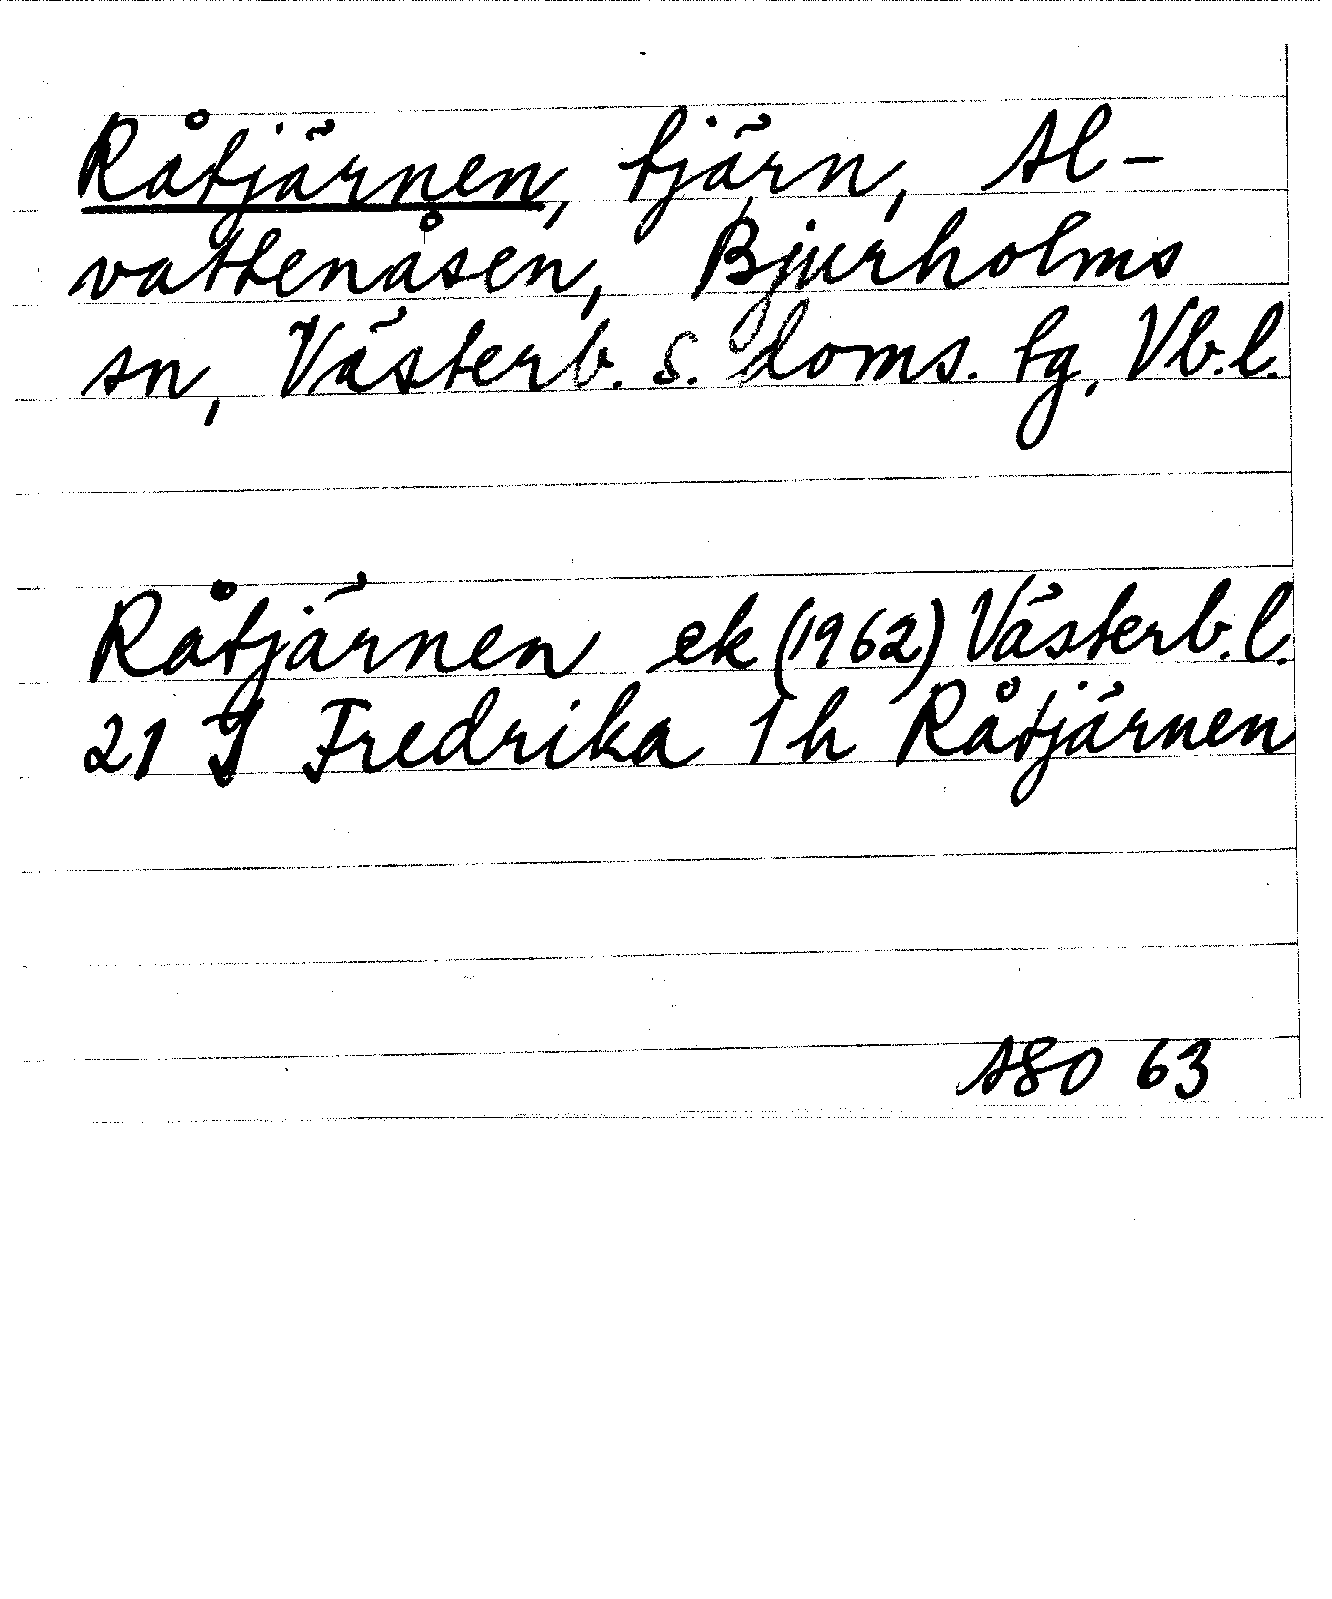 Råtjärnen, tjärn, Al-
vattenåsen, Bjurholms
sn, Västerb. s. doms. tg, Vb.l.
Råtjärnen ek (1962) Västerb.l.
21 J Fredrika 1 h Råtjärnen
ASO 63